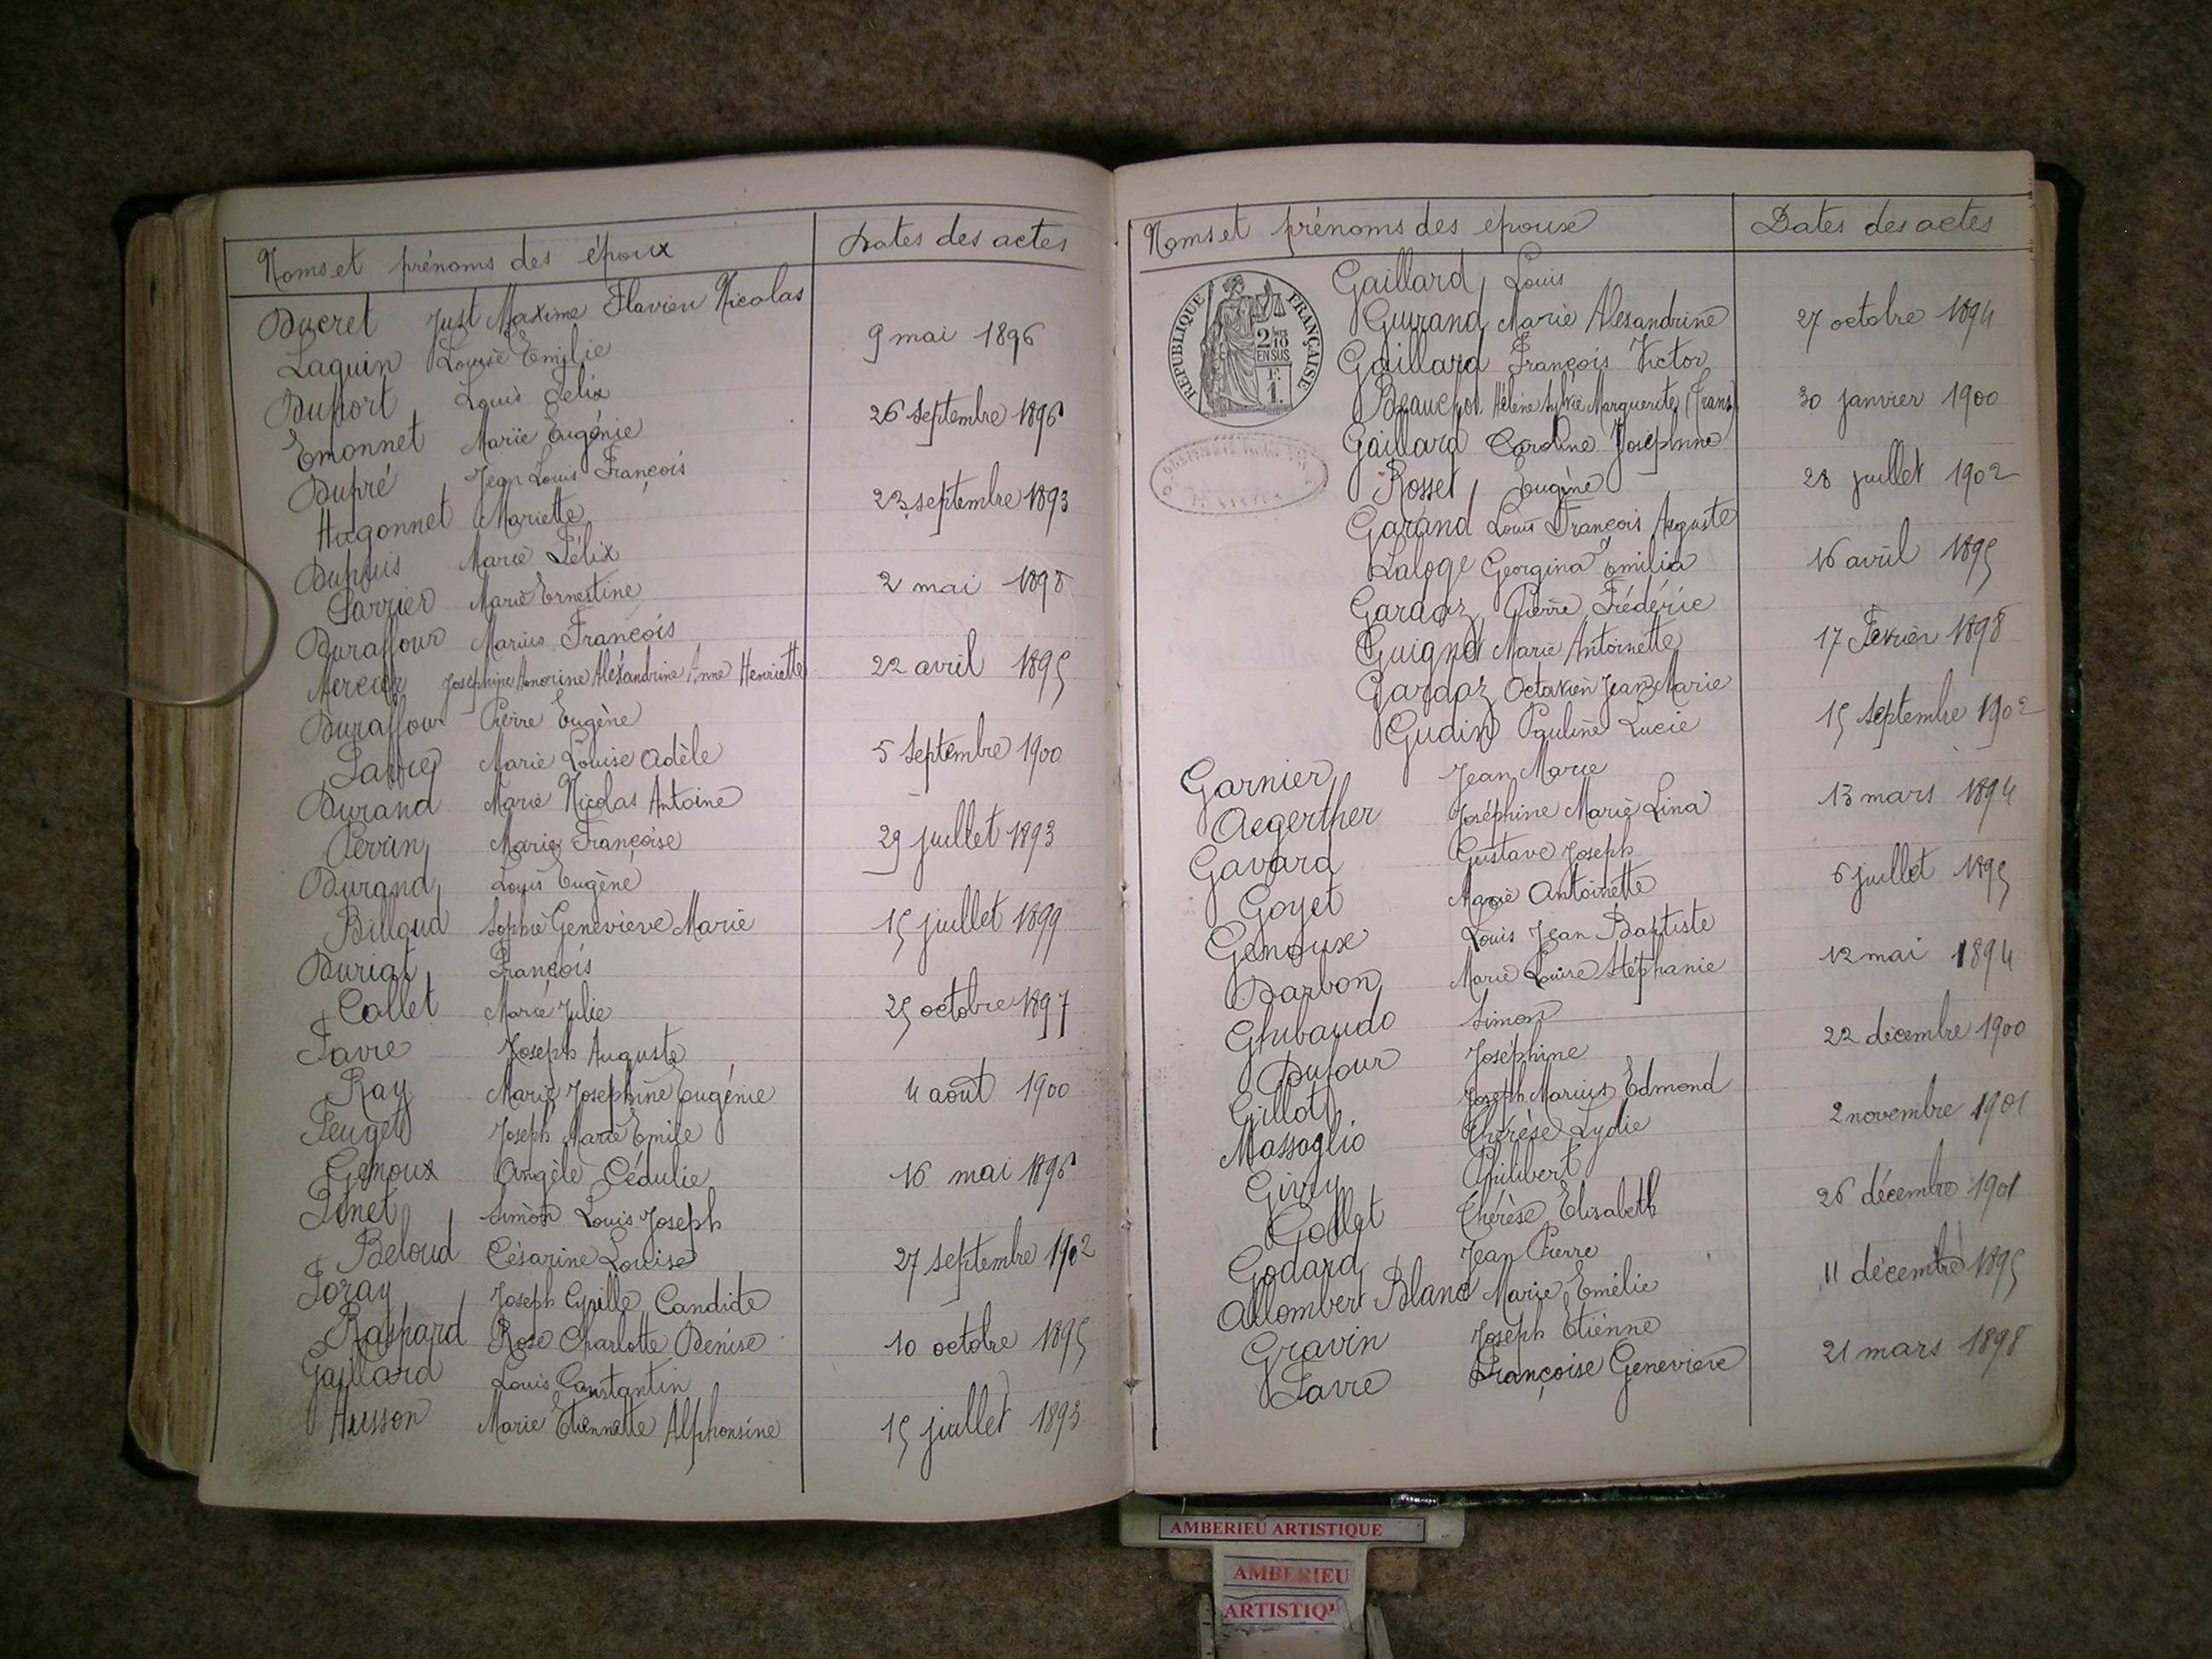 Noms et prénoms des époux
Dates des actes
Ducret Just Maxime Flavien Nicolas
Laguin Louise Emilie
9 mai 1896
Duport Louis Félix
Emonnet Marie Eugénie
26 septembre 1896
Dupré Jean Louis François
Hugonnet Mariette
23 septembre 1893
Dupuis Marie Félix
Carrier Marie Ernestine
2 mai 1898
Duraffour Marius François
Mercier Joséphine Honorine Aléxandrine Anne Henriette
22 avril 1895
Duraffour Pierre Eugène
Marie Louise Adèle
5 septembre 1900
Durand Marie Nicolas Antoine
Perrin Marie Françoise
29 juillet 1893
Durand Louis Eugène
Billoud Sophie Geneviève Marie
15 juillet 1899
Duriat François
Collet Marie Julie
25 octobre 1897
Favre Joseph Auguste
Ray Marie Joséphine Eugénie
4 août 1900
Feuget Joseph Marie Emile
Genoux Angèle Cédulie
16 mai 1896
Finet Simon Louis Joseph
Beloud Césarine Louise
27 septembre 1902
Foray Joseph Cyrille Candide
Raspard Rose Charlotte Denise
10 octobre 1895
Gaillard Louis Constantin
Husson Marie Etiennette Alphonsine
15 juillet 1893
Noms et prénoms des epoux
Dates des actes
RÉPUBLIQUE FRANÇAISE
2/10 EN SUS
F. 1.
Gaillard Louis
Guirand Marie Alexandrine
27 octobre 1894
Gaillard François Victor
Beauchot Hélène Sylvie Marguerite (Trans)
30 janvier 1900
Gaillard Caroline Joséphine
Rosset Eugène
28 juillet 1902
Garand Louis François Auguste
Laloge Georgina Emilia
16 avril 1895
Gardaz Pierre Frédéric
Guignot Marie Antoinette
17 Février 1898
Gardaz Octavien Jean Marie
Gudin Pauline Lucie
15 septembre 1902
Garnier Jean Marie
Aegerther Joséphine Marie Lina
13 mars 1894
Gavard Gustave Joseph
Goyet Marie Antoinette
6 juillet 1895
Genoux Louis Jean Baptiste
Darbon Marie Louise Stéphanie
12 mai 1894
Ghibaudo Simon
Dufour Joséphine
22 décembre 1900
Gillot Joseph Marius Edmond
Massoglio Thérèse Lydie
2 novembre 1901
Givry Philibert
Collet Thérèse Elisabeth
26 décembre 1901
Godard Jean Pierre
Allombert Blanc Marie Emélie
11 décembre 1895
Gravin Joseph Etienne
Favre Françoise Geneviève
21 mars 1898
AMBERIEU ARTISTIQUE
AMBERIEU
ARTISTIQU